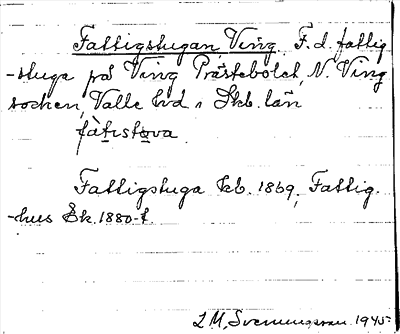 Fattigstugan Ving. F. d. fattig
-stuga på Ving Prästebolet, N. Ving
socken, Valle hd. i Skb. län
fàt̲rstɷva
Fattigstuga kb. 1869, Fattig-
-hus Ek. 1880-t.
L M, Svenningsson 1945